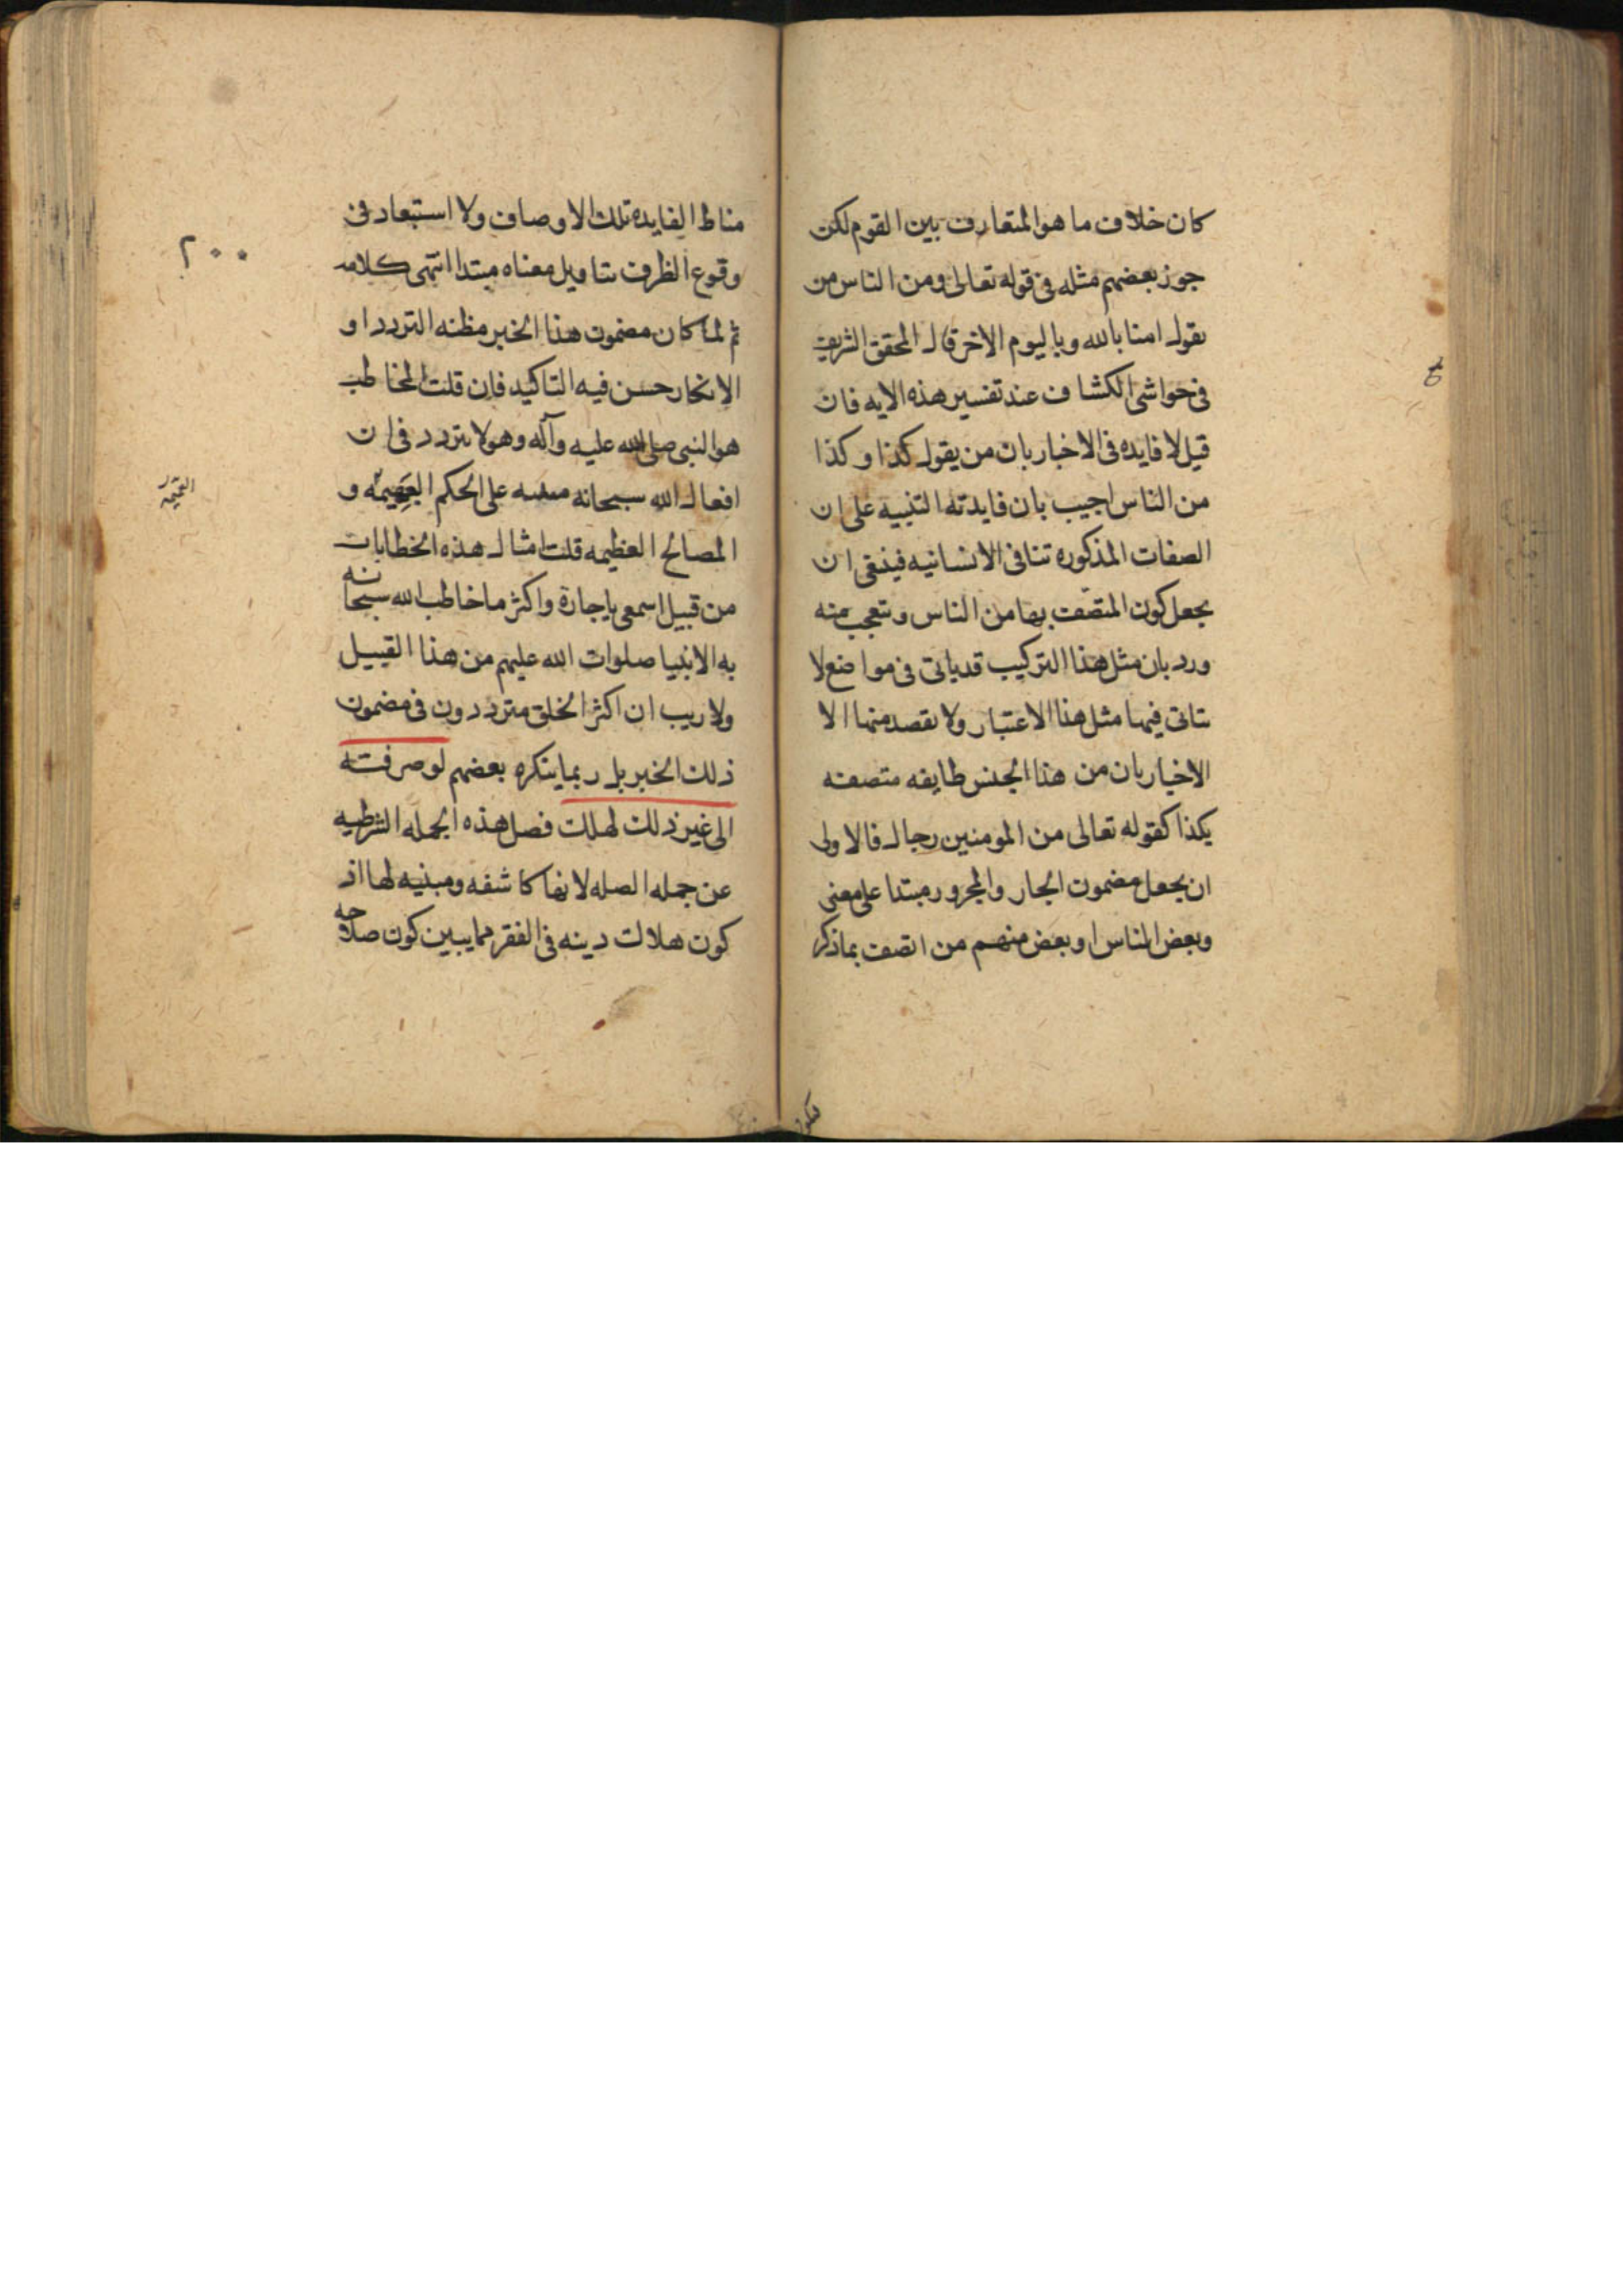 كان خلاف ما هو المتعارف بين القوم لكن
جوز بعضهم مثله فى قوله تعالى ومن الناس من
يقول امنا بالله وباليوم الاخر قال المحقق الشريف
فى حواشى الكشاف عند تفسير هذه الايه فان
قيل لا فايده فى الاخبار بان من يقول كذا وكذا
من الناس اجيب بان فايدته التنبيه على ان
الصفات المذكوره تنافى الانسانيه فينبغى ان
يجعل كون المتصف بها من الناس ويتعجب منه
ورد بان مثل هذا التركيب قد ياتى فى مواضع لا
يتاتى فيها مثل هذا الاعتبار ولا يقصد منها الا
الاخبار بان من هذا الجنس طايفه متصفه
بكذا كقوله تعالى من المومنين رجال فالاولى
ان يجعل مضمون الجار والمجرور مبتدا على معنى
وبعض الناس او بعض منهم من اتصف بما ذكر
فيكون
مناط الفايده تلك الاوصاف ولا استبعاد فى
وقوع الظرف بتاويل معناه مبتدا انتهى كلامه
٢٠٠
ثم لما كان مضمون هذا الخبر مظنه التردد او
الانكار حسن فيه التاكيد فان قلت المخاطب
هو النبى صلى الله عليه وآله وهو لا يتردد فى ان
افعال الله سبحانه على الحكم العميمه و
المصالح العظيمه قلت امثال هذه الخطابات
من قبيل اسمعى يا جارة واكثر ما خاطب الله سبحانه
به الانبيا صلوات الله عليهم من هذا القبيل
ولا ريب ان اكثر الخلق مترددون فى مضمون
ذلك الخبر بل ربما ينكره بعضهم لو صرفته
الى غير ذلك لهلك فصل هذه الجمله الشرطيه
عن جمله الصله لانها كاشفه ومبنيه لها اذ
كون هلاك دينه فى الفقر مما يبين كون صلاحه